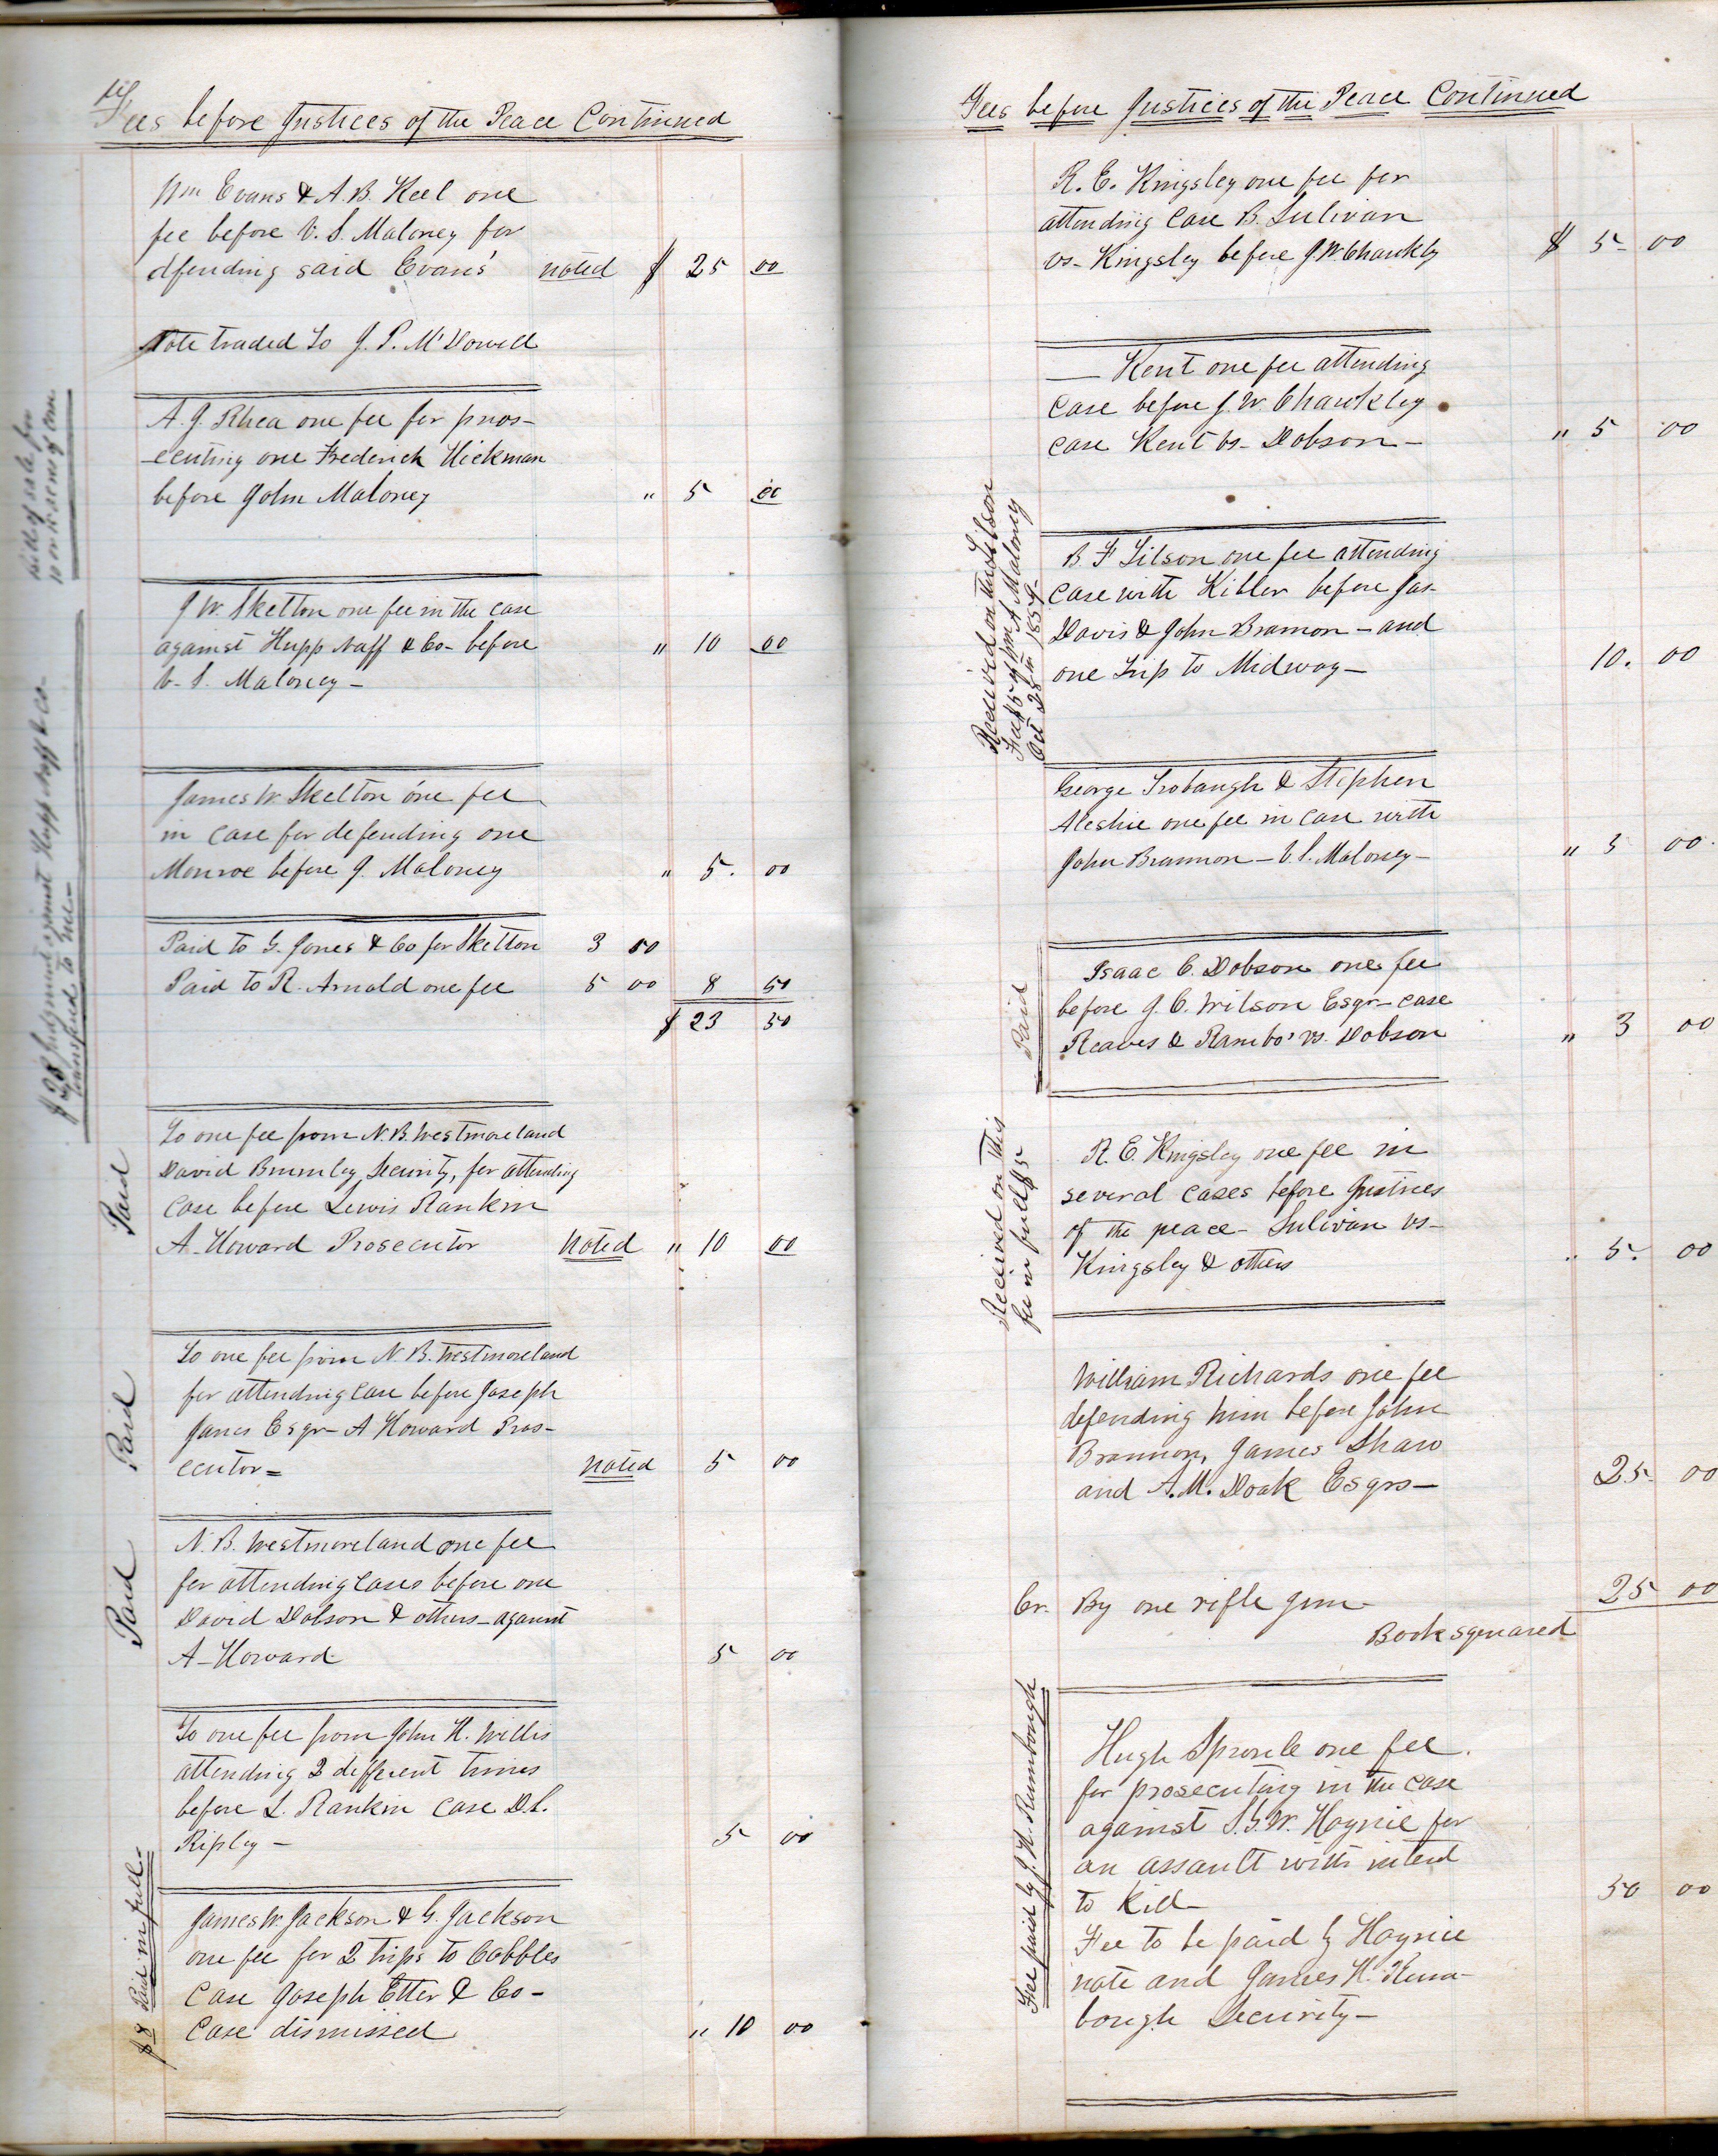 Fees before Justices of the Peace Continued
Wm Evans & A. B. Keel one
fee before V. S. Maloney for
dfending said Evans' noted $ 25 00
Note traded to J. P. McDowell
A. J. Rhea one fee for pros-
-ecuting one Frederick Hickman
before John Maloney " 5 00
J W. Skelton one fee in the case
against Hupp Naff & Co- before " 10 00
V. S. Maloney-
James W. Skelton one fee
in case for defending one
Monroe before J. Maloney " 5. 00
Paid to G. Jones & Co for Skelton 3 50
Paid to R. Arnold one fee 5 00 8 50
$ 23 50
To one fee from N. B. Westmoreland
David Brumley Security, for attending
case before Lewis Rankin
A- Howard Prosecutor Noted " 10 00
To one fee from N. B. Westmoreland
for attending case before Joseph
Janes Esqr- A Howard Pros-
ecutor= noted 5 00
N. B. Westmoreland one fee
for attending cases before one
David Dobson & others- against
A- Howard 5 00
To one fee from John K. Willis
attending 2 different times
before L. Rankin case D. L.
Ripley - 5 00
James W. Jackson & G. Jackson
one fee for 2 trips to Cobbles
Case Joseph Etter & Co-
Case dismissed " 10 00
bill of sale for
$23 Judgment against Hupp Naff & Co-
transferd to me-
Paid
Paid
Paid
$8 Paid in full-
Fees before Justices of the Peace Continued
R. E. Kingsley one fee for
attending case B. Sulivan
vs- Kingsley before J. W. Chawkly $ 5- 00
— Kent one fee attending
case before J. W. Chawkley
case Kent vs- Dobson- " 5 00
B. F Tilson one fee attending
case with Kibler before Jas-
Davis & John Bramon - and
one trip to Midway- 10. 00
Received on this Tilson
Fee $5 of Wm A Maloney
Oct 28th 1859-
George Trobaugh & Stephen
Aleshie one fee in case with
John Brannon - V. S. Maloney- " 5 00
Isaac C. Dobson one fee
before J. C. Wilson Esqr- case
Reaves & Rambo' vs. Dobson " 3 00
Paid
R. E. Kingsley one fee in
several cases before Justices
of the peace- Sulivan vs-
Kingsley & others " 5. 00
Received on this
fee in full $5
William Richards one fee
defending him before John
Brannon, James Shaw
and A. M. Doak Esqrs- 25- 00
Cr. By one rifle gun- 25 00
Book squared
Hugh Sproule one fee.
for prosecuting in the case
against S. G. W. Haynie for
an assault with intend
to kill- 50 00
Fee to be paid by Haynie
note and James H. Rum-
bough Security-
Fee paid by J. H. Rumbough